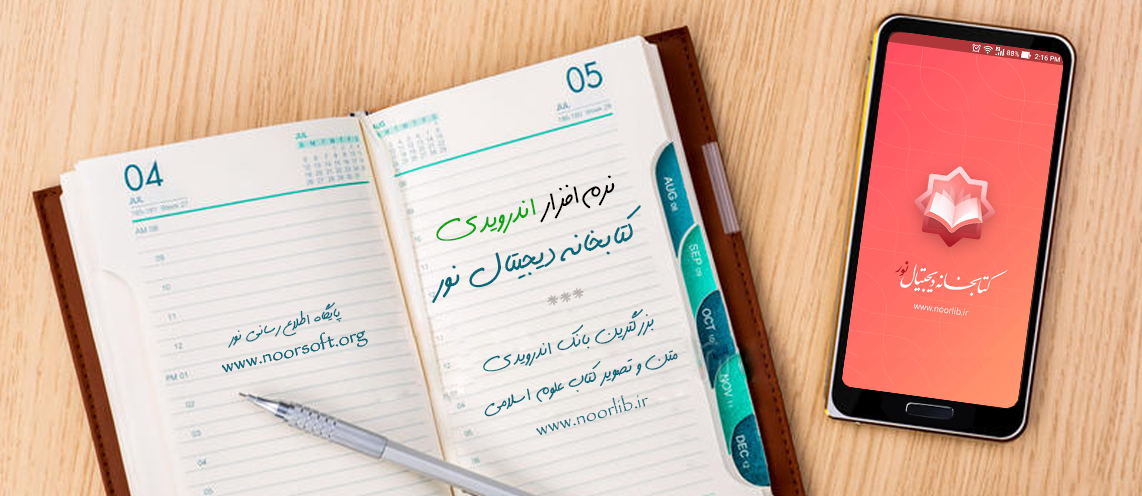 04
JUL
AM 08
09
10
11
12
پایگاه اطلاع رسانی نور
www.noorsoft.org
PM 01
02
03
04
05
AUG
JUL
05
JUL
نرم افزار اندرویدی
کتابخانه دیجیتال نور
***
بزرگترین بانک اندرویدی
متن و تصویر کتاب علوم اسلامی
www.noorlib.ir
04
05
06
AUG 08
SEP 09
OCT 10
NOV 11
DEC 12
88% 2:16 PM
کتابخانه دیجیتال نور
www.noorlib.ir